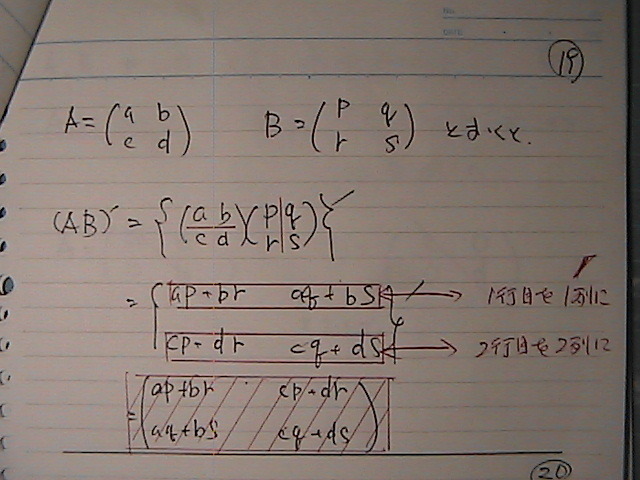 No.
DATE
19
A = (a b c d) B = (p q r s) とおくと.
(AB)' = {(a b c d)(p q r s)}'
= {ap + br aq + bs}' → 1行目を1列に
cp + dr cq + ds → 2行目を2列に
= (ap + br cp + dr
aq + bs cq + ds)
20